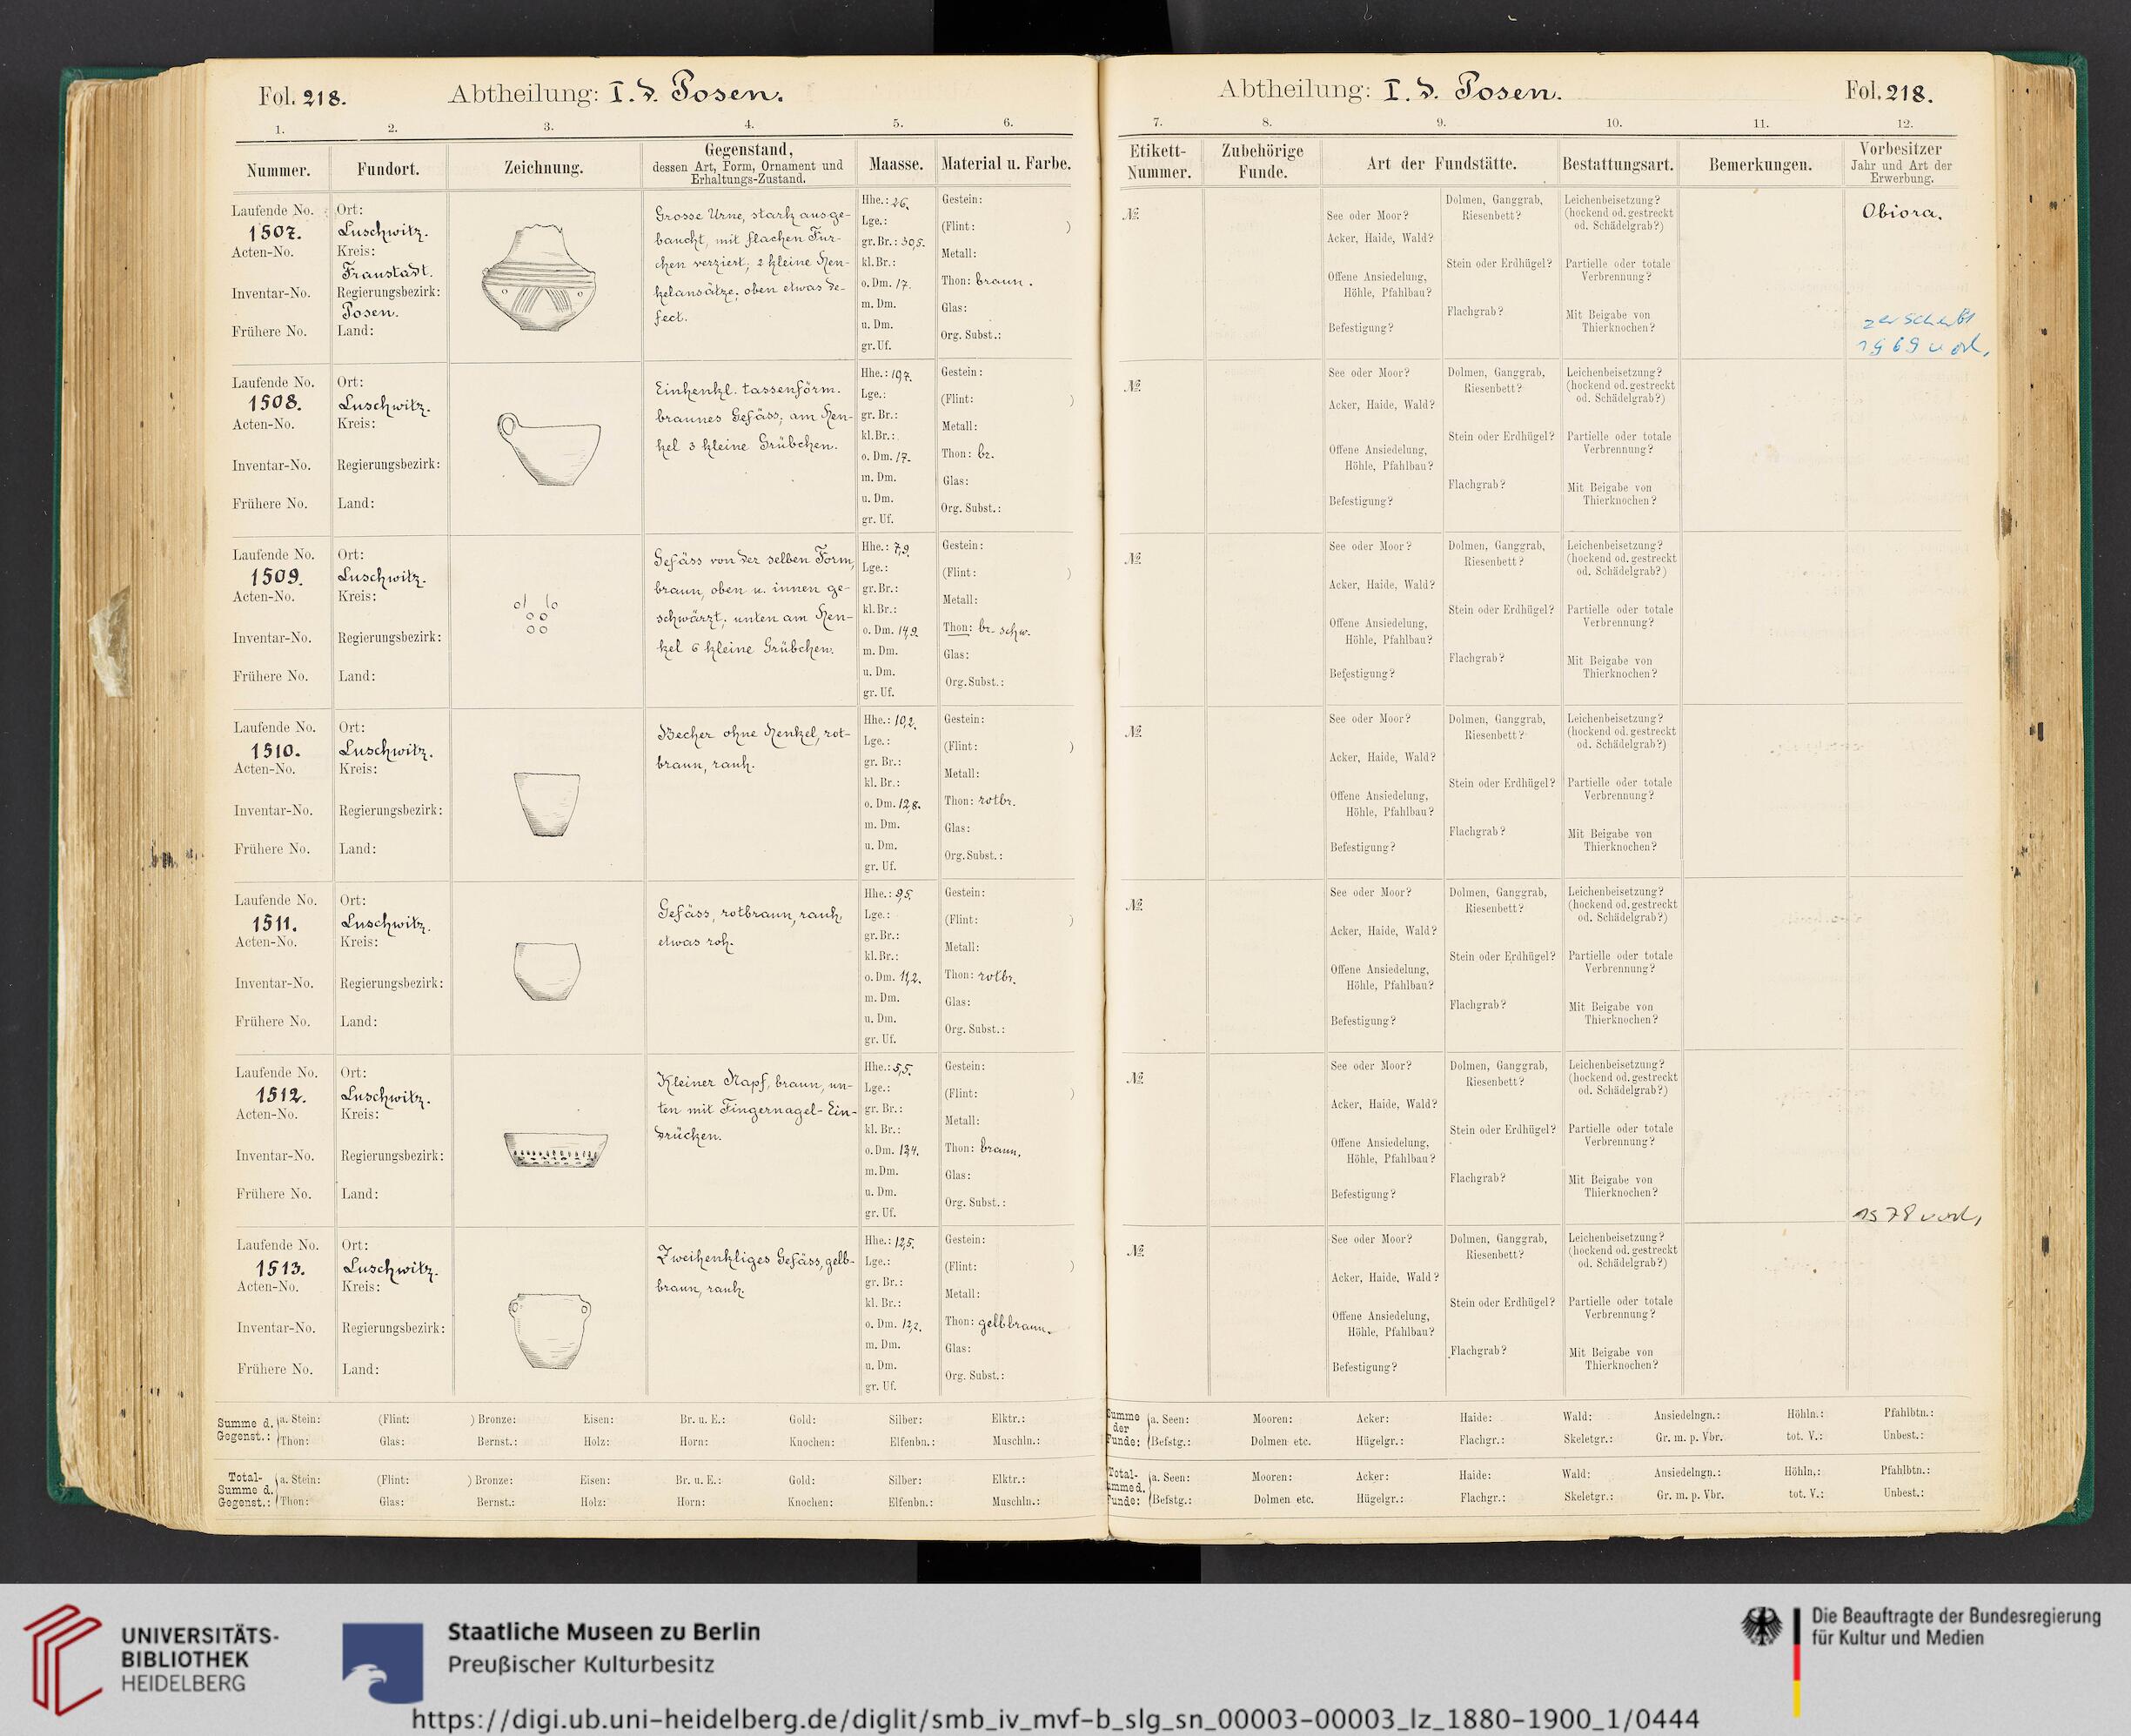 Fol. 218.
Abtheilung: I. d. Posen.
1. 2. 3. 4. 5. 6.
Nummer. Fundort. Zeichnung. Gegenstand, dessen Art, Form, Ornament und Erhaltungs-Zustand. Maasse. Material u. Farbe.
Laufende No. 1507.
Acten-No.
Inventar-No.
Frühere No.
Ort: Luschwitz.
Kreis: Fraustadt.
Regierungsbezirk: Posen.
Land:
Grosse Urne, stark ausge-
baucht, mit flachen Fur-
chen verziert; 2 kleine Hen-
kelansätze; oben etwas de-
fect.
Hhe.: 26.
Lge.:
gr. Br.: 30,5.
kl. Br.:
o. Dm. 17.
m. Dm.
u. Dm.
gr. Uf.
Gestein:
(Flint: )
Metall:
Thon: braun.
Glas:
Org. Subst.:
Laufende No. 1508.
Acten-No.
Inventar-No.
Frühere No.
Ort: Luschwitz.
Kreis:
Regierungsbezirk:
Land:
Einhenkl. tassenförm.
braunes Gefäss; am Hen-
kel 3 kleine Grübchen.
Hhe.: 10,7.
Lge.:
gr. Br.:
kl. Br.:
o. Dm. 17.
m. Dm.
u. Dm.
gr. Uf.
Gestein:
(Flint: )
Metall:
Thon: br.
Glas:
Org. Subst.:
Laufende No. 1509.
Acten-No.
Inventar-No.
Frühere No.
Ort: Luschwitz.
Kreis:
Regierungsbezirk:
Land:
Gefäss von der selben Form,
braun, oben u. innen ge-
schwärzt; unten am Hen-
kel 6 kleine Grübchen.
Hhe.: 7,9.
Lge.:
gr. Br.:
kl. Br.:
o. Dm. 14,9.
m. Dm.
u. Dm.
gr. Uf.
Gestein:
(Flint: )
Metall:
Thon: br. schw.
Glas:
Org. Subst.:
Laufende No. 1510.
Acten-No.
Inventar-No.
Frühere No.
Ort: Luschwitz.
Kreis:
Regierungsbezirk:
Land:
Becher ohne Henkel, rot-
braun, rauh.
Hhe.: 10,2.
Lge.:
gr. Br.:
kl. Br.:
o. Dm. 12,8.
m. Dm.
u. Dm.
gr. Uf.
Gestein:
(Flint: )
Metall:
Thon: rotbr.
Glas:
Org. Subst.:
Laufende No. 1511.
Acten-No.
Inventar-No.
Frühere No.
Ort: Luschwitz.
Kreis:
Regierungsbezirk:
Land:
Gefäss, rotbraun, rauh,
etwas roh.
Hhe.: 9,5.
Lge.:
gr. Br.:
kl. Br.:
o. Dm. 11,2.
m. Dm.
u. Dm.
gr. Uf.
Gestein:
(Flint: )
Metall:
Thon: rotbr.
Glas:
Org. Subst.:
Laufende No. 1512.
Acten-No.
Inventar-No.
Frühere No.
Ort: Luschwitz.
Kreis:
Regierungsbezirk:
Land:
Kleiner Napf, braun, un-
ten mit Fingernagel-Ein-
drücken.
Hhe.: 5,5.
Lge.:
gr. Br.:
kl. Br.:
o. Dm. 13,4.
m. Dm.
u. Dm.
gr. Uf.
Gestein:
(Flint: )
Metall:
Thon: braun.
Glas:
Org. Subst.:
Laufende No. 1513.
Acten-No.
Inventar-No.
Frühere No.
Ort: Luschwitz.
Kreis:
Regierungsbezirk:
Land:
Zweihenkliges Gefäss, gelb-
braun, rauh.
Hhe.: 12,5.
Lge.:
gr. Br.:
kl. Br.:
o. Dm. 12,2.
m. Dm.
u. Dm.
gr. Uf.
Gestein:
(Flint: )
Metall:
Thon: gelbbraun.
Glas:
Org. Subst.:
Summe d. Gegenst.: a. Stein: (Flint: ) Bronze: Eisen: Br. u. E.: Gold: Silber: Elktr.:
Thon: Glas: Bernst.: Holz: Horn: Knochen: Elfenbn.: Muschln.:
Total-Summe d. Gegenst.: a. Stein: (Flint: ) Bronze: Eisen: Br. u. E.: Gold: Silber: Elktr.:
Thon: Glas: Bernst.: Holz: Horn: Knochen: Elfenbn.: Muschln.:
Abtheilung: I. d. Posen.
Fol. 218.
7. 8. 9. 10. 11. 12.
Etikett-Nummer. Zubehörige Funde. Art der Fundstätte. Bestattungsart. Bemerkungen. Vorbesitzer Jahr und Art der Erwerbung.
№
See oder Moor?
Acker, Haide, Wald?
Offene Ansiedelung,
Höhle, Pfahlbau?
Befestigung?
Dolmen, Ganggrab,
Riesenbett?
Stein oder Erdhügel?
Flachgrab?
Leichenbeisetzung?
(hockend od. gestreckt
od. Schädelgrab?)
Partielle oder totale
Verbrennung?
Mit Beigabe von
Thierknochen?
Obiora.
zerscherbt
1969 vorh.
№
See oder Moor?
Acker, Haide, Wald?
Offene Ansiedelung,
Höhle, Pfahlbau?
Befestigung?
Dolmen, Ganggrab,
Riesenbett?
Stein oder Erdhügel?
Flachgrab?
Leichenbeisetzung?
(hockend od. gestreckt
od. Schädelgrab?)
Partielle oder totale
Verbrennung?
Mit Beigabe von
Thierknochen?
№
See oder Moor?
Acker, Haide, Wald?
Offene Ansiedelung,
Höhle, Pfahlbau?
Befestigung?
Dolmen, Ganggrab,
Riesenbett?
Stein oder Erdhügel?
Flachgrab?
Leichenbeisetzung?
(hockend od. gestreckt
od. Schädelgrab?)
Partielle oder totale
Verbrennung?
Mit Beigabe von
Thierknochen?
№
See oder Moor?
Acker, Haide, Wald?
Offene Ansiedelung,
Höhle, Pfahlbau?
Befestigung?
Dolmen, Ganggrab,
Riesenbett?
Stein oder Erdhügel?
Flachgrab?
Leichenbeisetzung?
(hockend od. gestreckt
od. Schädelgrab?)
Partielle oder totale
Verbrennung?
Mit Beigabe von
Thierknochen?
№
See oder Moor?
Acker, Haide, Wald?
Offene Ansiedelung,
Höhle, Pfahlbau?
Befestigung?
Dolmen, Ganggrab,
Riesenbett?
Stein oder Erdhügel?
Flachgrab?
Leichenbeisetzung?
(hockend od. gestreckt
od. Schädelgrab?)
Partielle oder totale
Verbrennung?
Mit Beigabe von
Thierknochen?
№
See oder Moor?
Acker, Haide, Wald?
Offene Ansiedelung,
Höhle, Pfahlbau?
Befestigung?
Dolmen, Ganggrab,
Riesenbett?
Stein oder Erdhügel?
Flachgrab?
Leichenbeisetzung?
(hockend od. gestreckt
od. Schädelgrab?)
Partielle oder totale
Verbrennung?
Mit Beigabe von
Thierknochen?
1978 vorh.
№
See oder Moor?
Acker, Haide, Wald?
Offene Ansiedelung,
Höhle, Pfahlbau?
Befestigung?
Dolmen, Ganggrab,
Riesenbett?
Stein oder Erdhügel?
Flachgrab?
Leichenbeisetzung?
(hockend od. gestreckt
od. Schädelgrab?)
Partielle oder totale
Verbrennung?
Mit Beigabe von
Thierknochen?
Summe der Funde: a. Seen: Mooren: Acker: Haide: Wald: Ansiedelngn.: Höhln.: Pfahlbtn.:
Befstg.: Dolmen etc. Hügelgr.: Flachgr.: Skeletgr.: Gr. m. p. Vbr. tot. V.: Unbest.:
Total-Summe d. Funde: a. Seen: Mooren: Acker: Haide: Wald: Ansiedelngn.: Höhln.: Pfahlbtn.:
Befstg.: Dolmen etc. Hügelgr.: Flachgr.: Skeletgr.: Gr. m. p. Vbr. tot. V.: Unbest.:
UNIVERSITÄTS-
BIBLIOTHEK
HEIDELBERG
Staatliche Museen zu Berlin
Preußischer Kulturbesitz
Die Beauftragte der Bundesregierung
für Kultur und Medien
https://digi.ub.uni-heidelberg.de/diglit/smb_iv_mvf-b_slg_sn_00003-00003_lz_1880-1900_1/0444